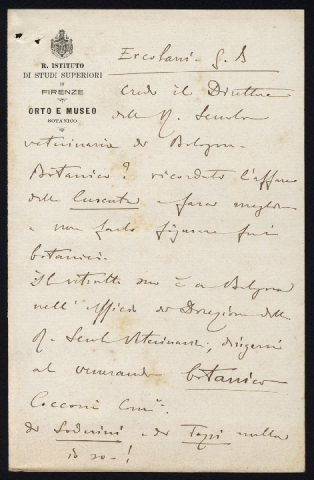 R. ISTITUTO
DI STUDI SUPERIORI
DI
FIRENZE
ORTO E MUSEO
BOTANICO
Ercolani G. B
Credo il Direttore
della R. Scuola
veterinaria di Bologna.
Botanico? ricordate l'affare
della Cuscuta e farà meglio
a non farlo figurare fra i
botanici.
Il ritratto suo è a Bologna
nell'Ufficio di Direzione della
R. Scuola Veterinaria; dirigersi
al venerando botanico
Cocconi Com.
di Soderini e di Tozzi nulla
io so!